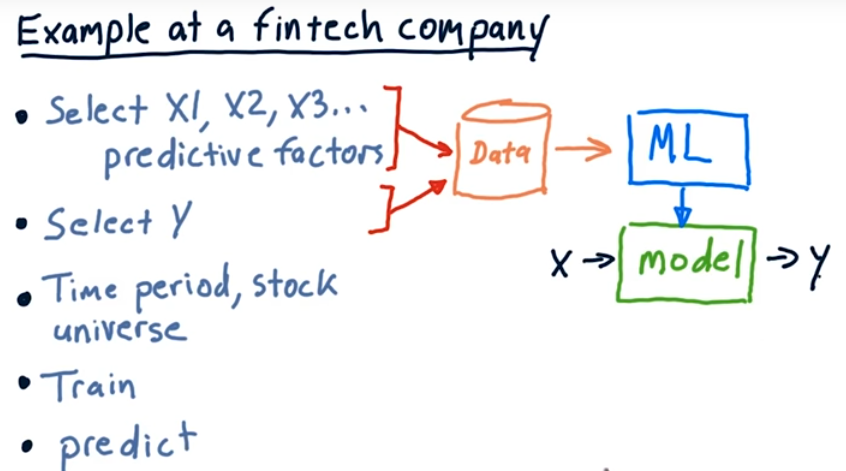 Example at a fintech company
• Select X1, X2, X3...
predictive factors
• Select Y
• Time period, stock
universe
• Train
• predict
Data
ML
X → model → Y